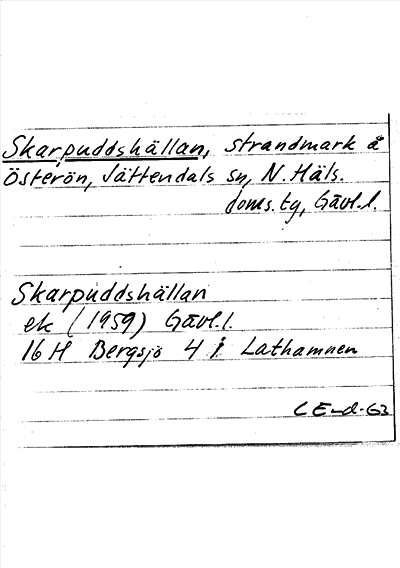 Skarpuddshällan, strandmark å
Österön, Jättendals sn, N. Häls.
doms. tg, Gävl.l.
Skarpuddshällan
ek (1959) Gävl.l.
16 H Bergsjö 4 i Lathamnen